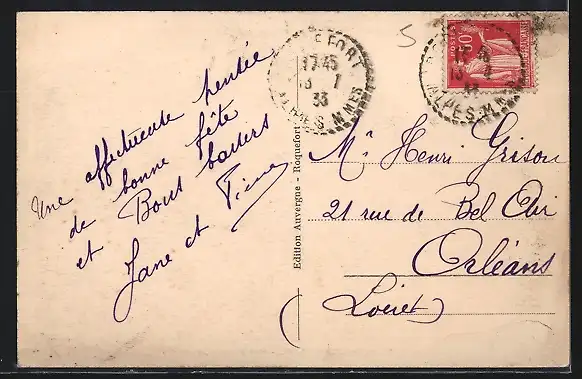 Une affectueuse pensée
de bonne fête
et Bons baisers
Jane et
Edition Auvergne - Roquefort
EFORT
17 45
13 1
33
ALPES MMES
5
POSTES
Mr Henri Grison
21 rue de Bel Air
Orléans
Loiret